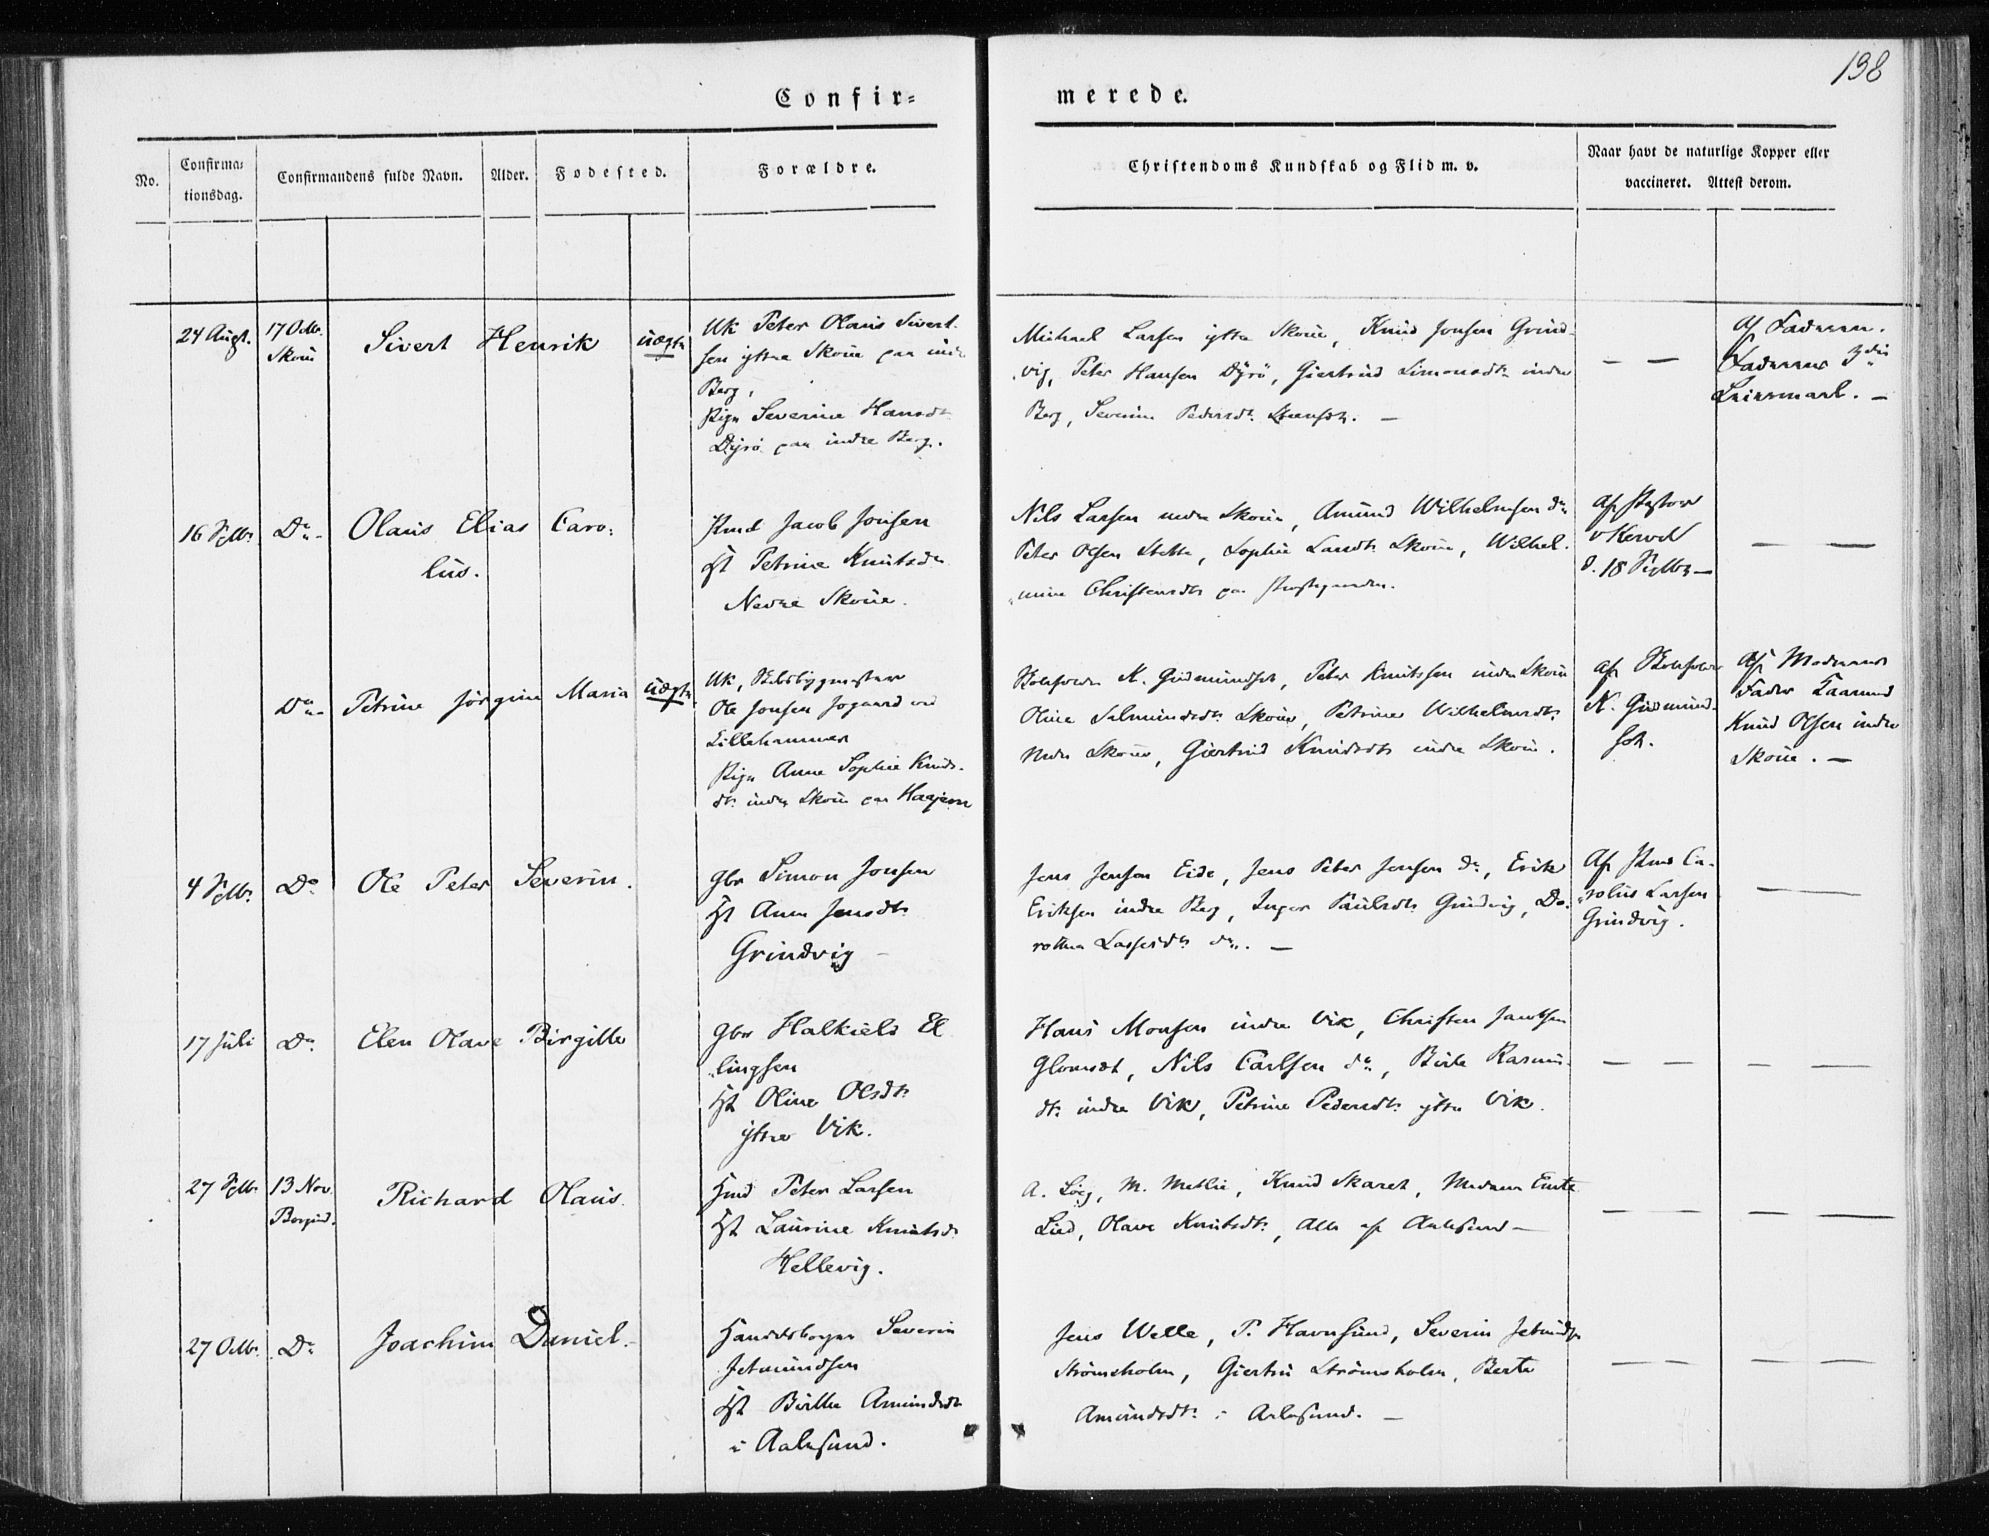 138
Confir=
merede.
No.
Confirma=
tionsdag.
Confirmandens fulde Navn.
Alder.
Fødested.
Forældre.
Christendoms Kundskab og Flid m. v.
Naar havt de naturlige Kopper eller
vaccineret. Attest derom.
24 Augt.
17 Octb.
Skoue
Sivert Henrik
uægte
Uk Peter Olaus Sivert
sen ytre Skoue paa indre
Berg,
Pige Severine Hansdt
Dyrø paa indre Berg.
Michael Larsen ytre Skoue, Knud Jonsen Grind
vig, Peter Hansen Dyrø, Giertrud Simonsdt indre
Berg, Severine Pedersdt
— —
Af Faderen.
Faderen
Leiermaal. —
16 Septbr.
Do
Olaus Elias Caro:
lus.
Jacob Jonsen
H Petrine Knutsdr
Nedre Skoue.
Nils Larsen nedre Skoue, Amund Wilhelmsen do
Peter Olsen Stette, Sophie Skoue, Wilhel.
mine Christensdt paa
Af Pastor
d. 18 Septbr —
— —
Do
Petrine Jørgine Maria
uægte
Uk,
Ole Jonsen ved
Lillehammer
Pige Anne Sophie Knuds.
dt indre Skoue paa Haajem
K. Gudmundsen, Peter Knutssen indre Skoue
Oline Salmundsdt Skoue, Petrine Wilhelmsdt
nedre Skoue, Giertrud Knudsdt indre Skoue.
af
K. Gudmund.
sen.
Af Moderens
Fader
Knud Olsen indre
Skoue. —
4 Septbr.
Do
Ole Peter Severin.
Gbr Simon Jonsen
H Anne Jensdt
Grindvig
Jens Jensen Eide, Jens Peter Jensen do, Erik
Eriksen indre Berg, Inger Paulsdt Grindvig, Do.
rothea Lassesdt do. —
Af Ca.
rolus Larsen
Grindvig.
—
17 Juli
Do
Elen Olave Birgitte
Gbr Halkield El
lingsen
H Oline Olsdt
ytre Vik.
Hans Monsen indre Vik, Christen Jacobsen
Glomset, Nils Carlsen do, Birte Rasmus
dt indre Vik, Petrine Pedersdt ytre Vik.
— —
— —
27 Septbr
13 Nov.
Borgund.
Richard Olaus.
Hmd Peter Larsen
H Laurine Knutsd.
Hellevig.
A. Løeg, M. Methie, Knud Skaret, Madame
Lied, Olave Knutsdt, Alle af Aalesund —
— —
— —
27 Octb.
Do
Joachim Daniel.
Handelsborger Severin
Jetmundsen
H Birthe Amundsdt
i Aalesund.
Jens Welle, P. Havnsund, Severin Jetmunds
Strømsholm, Giertru Strømsholm, Berte
Amundsdt i Aalesund. —
— —
— —